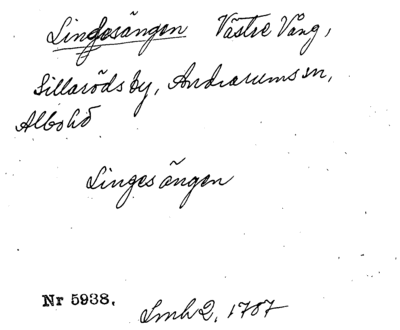 Lingesängen Västre Vång,
Sillaröds by, Andrarums sn,
Albo hd
Lingesängen
Nr 5938.
Lmh2, 1787